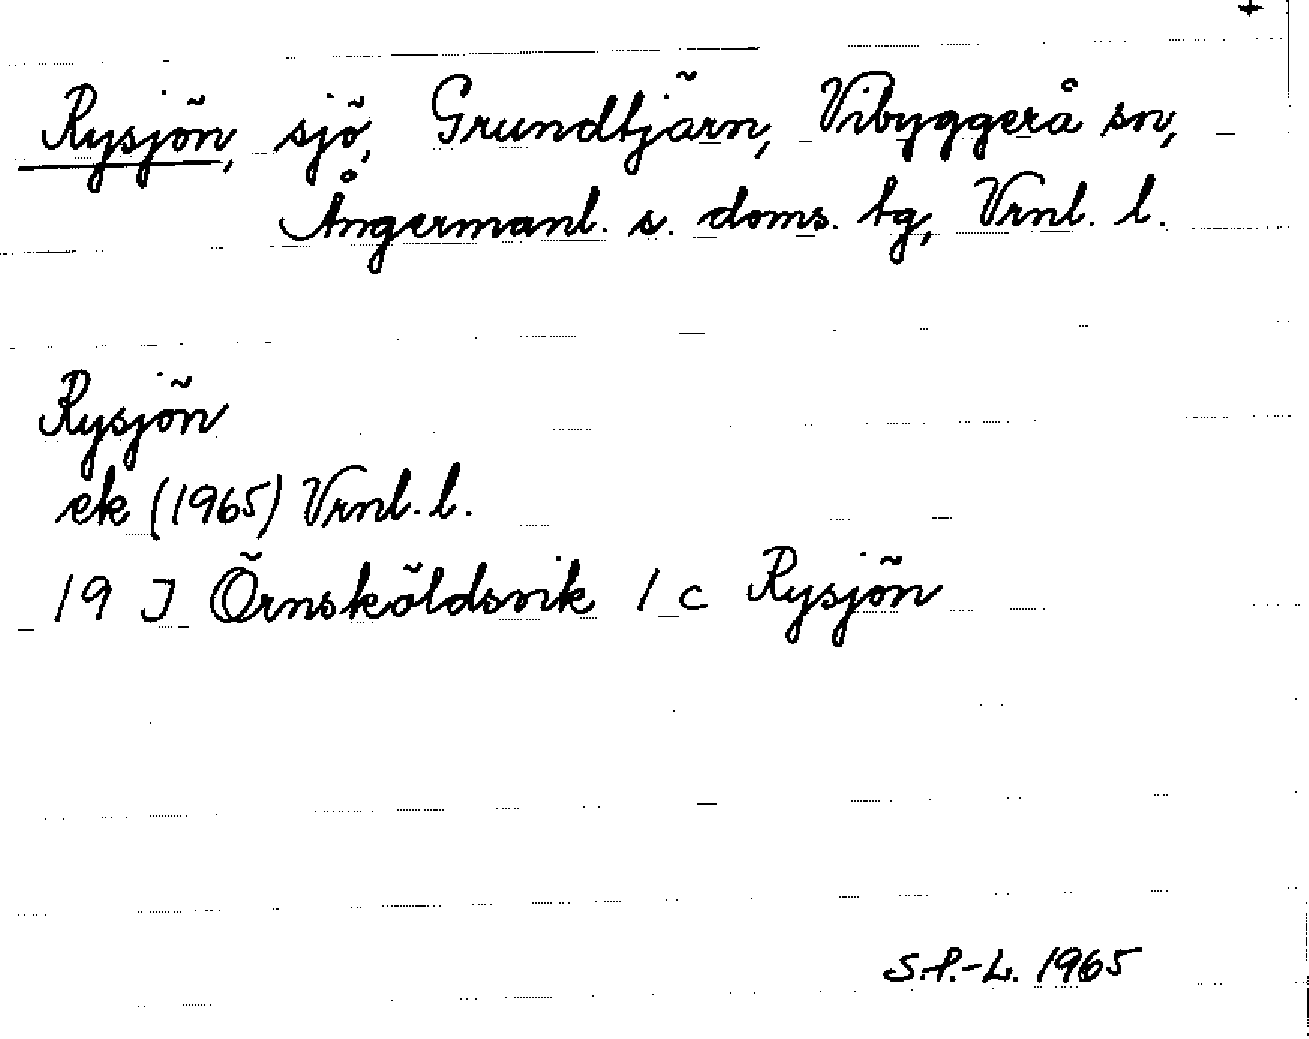 Rysjön, sjö, Grundtjärn, Vibyggerå sn,
Ångermanl. s. doms. tg, Vrnl. l.
Rysjön
ek (1965) Vrnl. l.
19 J Örnsköldsvik 1 c Rysjön
S.P.-L. 1965